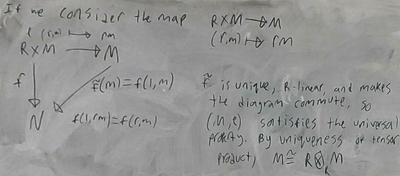 If we consider the map
R×M → M
(r,m) ↦ rm
(r,m) ↦ rm
R×M → M
f
f̃(m)=f(1,m)
N
f(1,rm)=f(r,m)
f̃ is unique, R-linear, and makes
the diagram commute, so
(M, ) satisfies the universal
property. By uniqueness of tensor
product, M ≅ R⊗_R M